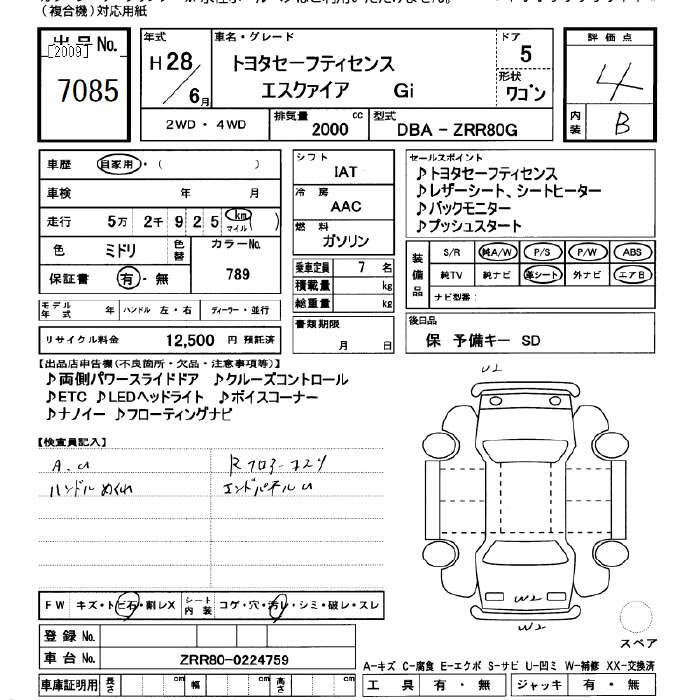 (複合機)対応用紙
出品No.
[2009]
7085
年式
H28/6月
車名・グレード
トヨタセーフティセンス
エスクァイア Gi
ドア
5
形状
ワゴン
評価点
4
内装
B
2WD・4WD
排気量 2000 cc
型式 DBA-ZRR80G
車歴 自家用・( )
車検 年 月
走行 5万 2千 9 2 5 (km マイル)
色 ミドリ 色替 カラーNo.
保証書 有・無 789
モデル年式 年 ハンドル 左・右 ディーラー・並行
リサイクル料金 12,500 円 預託済
シフト
IAT
冷房
AAC
燃料
ガソリン
乗車定員 7 名
積載量 kg
総重量 kg
書類期限
月 日
セールスポイント
♪トヨタセーフティセンス
♪レザーシート、シートヒーター
♪バックモニター
♪プッシュスタート
装備品
S/R 純A/W P/S P/W ABS
純TV 純ナビ 革シート 外ナビ エアB
ナビ型番:
後日品
保 予備キー SD
【出品店申告欄(不良箇所・欠品・注意事項等)】
♪両側パワースライドドア ♪クルーズコントロール
♪ETC ♪LEDヘッドライト ♪ボイスコーナー
♪ナノイー ♪フローティングナビ
【検査員記入】
A.U
ハンドルめくれ
エンドパネルU
U2
W2
W2
スペア
FW キズ・トビ石・割レX
シート内装 コゲ・穴・汚レ・シミ・破レ・スレ
登録No.
車台No. ZRR80-0224759
車庫証明用 長さ cm 幅 cm 高さ cm
A-キズ C-腐食 E-エクボ S-サビ U-凹ミ W-補修 XX-交換済
工具 有・無 ジャッキ 有・無